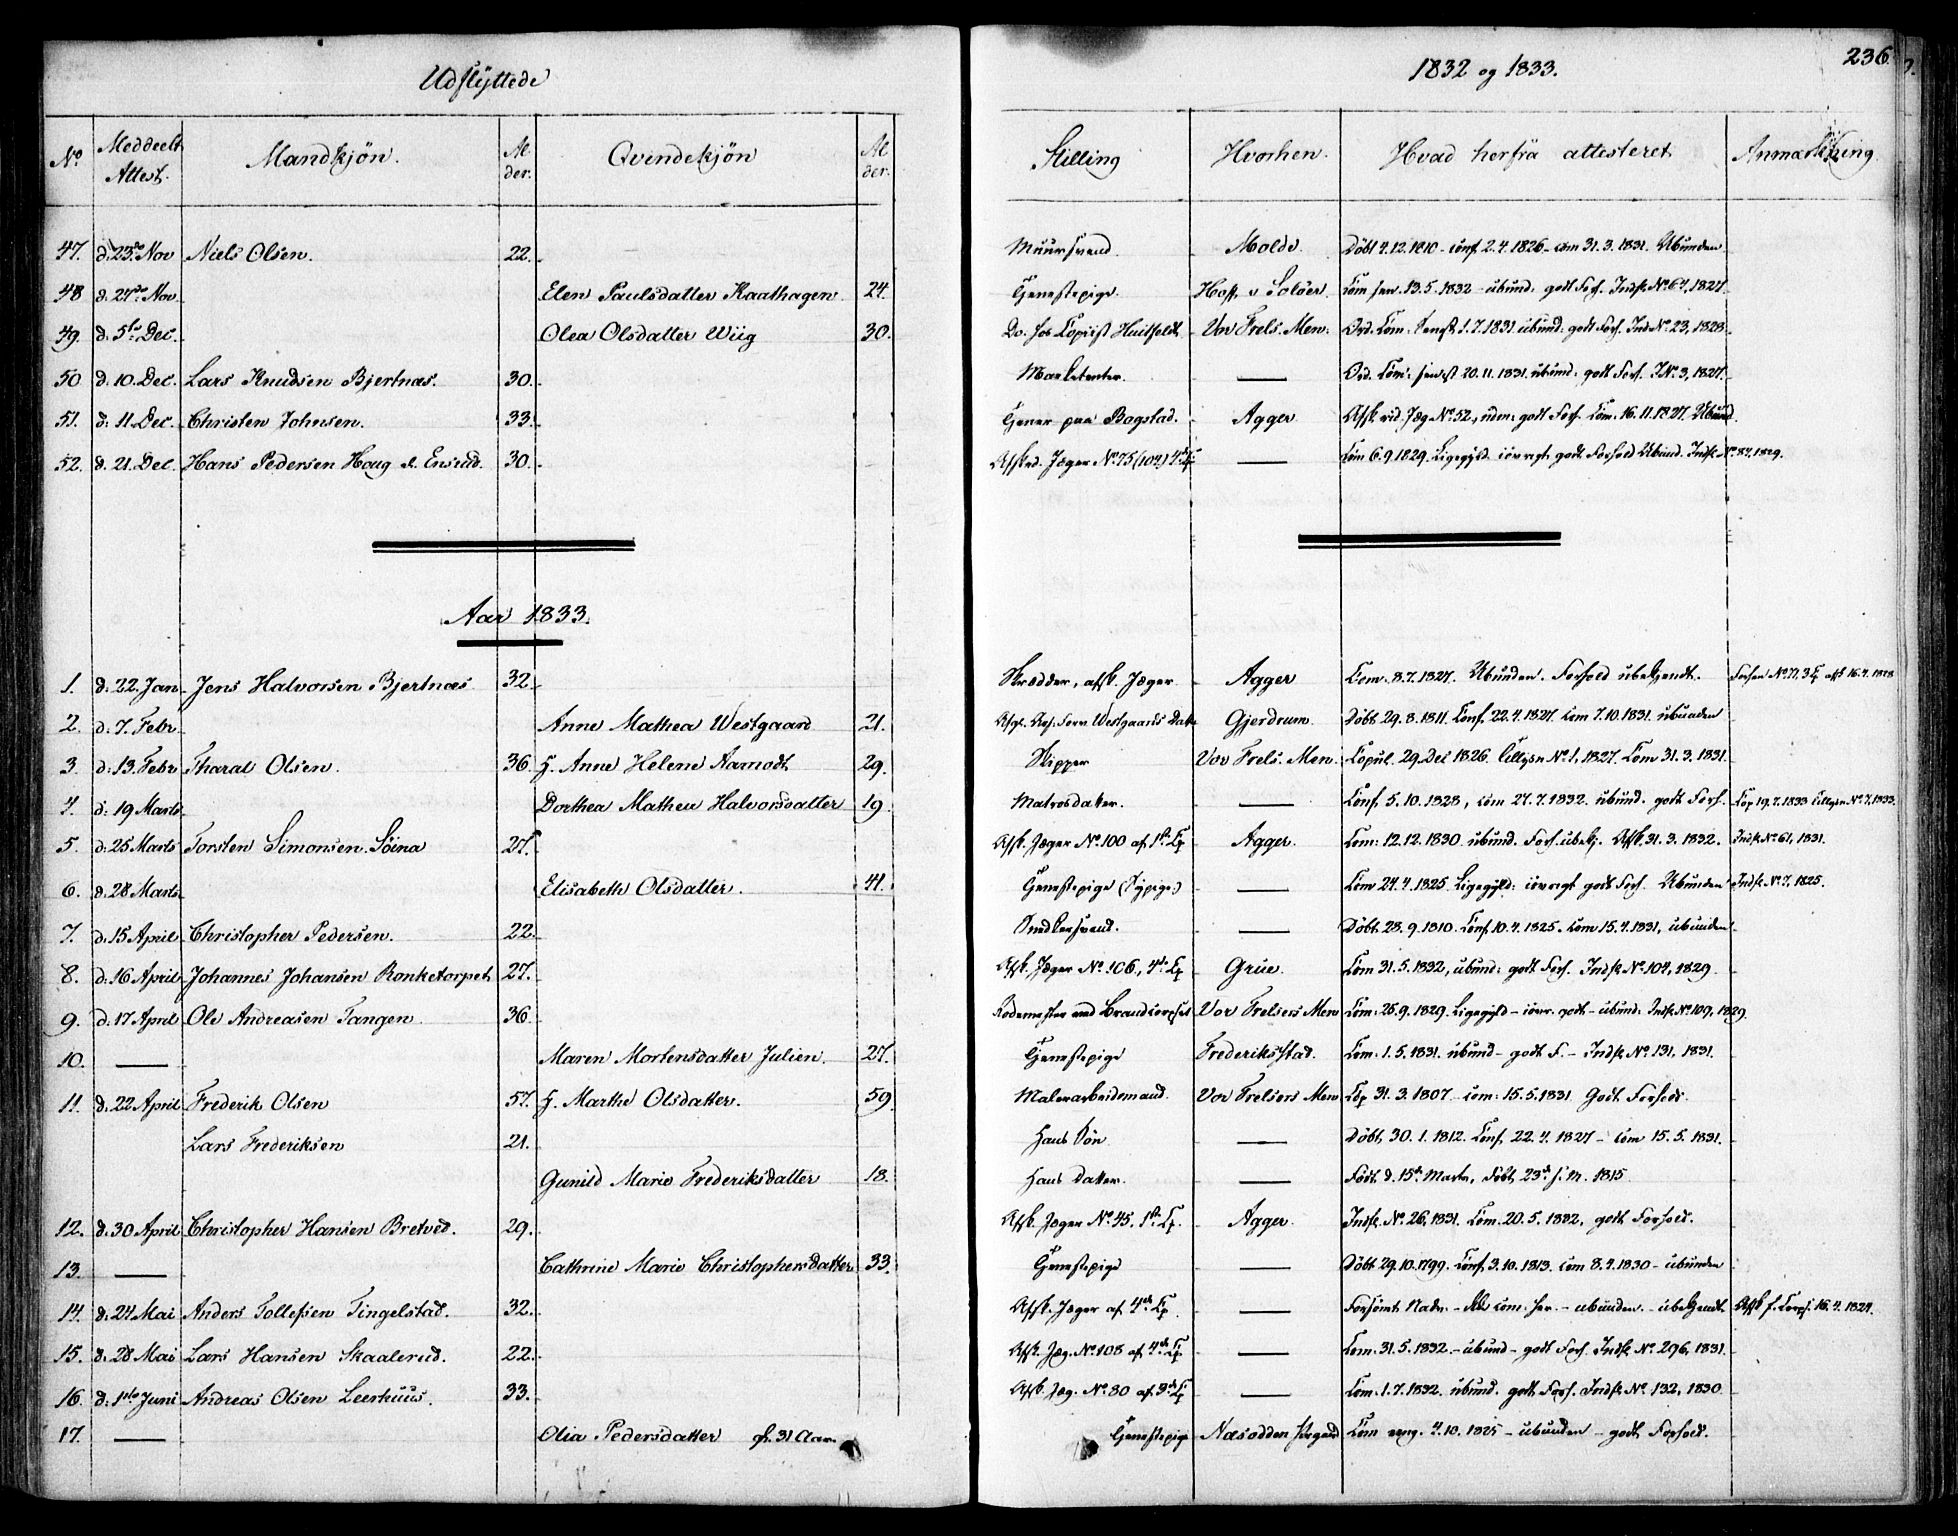 Udflyttede
1832 og 1833.
236.
No | Meddeelt Attest. | Mandkjön. | Alder. | Qvindekjön | Alder. | Stilling | Hvorhen. | Hvad herfra attesteret | Anmærkning
47. | d. 23de Nov | Niels Olsen. | 22. | Muursvend. | Molde. | Döbt 4.12.1810 - conf. 2.4.1826 - com 31.3.1831. Ubunden
48 | d. 24de Nov. | Elen Paulsdatter Kaathagen | 24. | Tjenestepige. | Hoff, v Solöer. | Com sen. 13.5.1832 - ubund: godt Forh. Indk No 64, 1827.
49. | d. 5te Dec. | Olea Olsdatter Wiig | 30. | Do. hos Copiist Huitfeldt | Vor Frels. Men. | Ord. Com: senest 1.7.1831. ubund: godt Forh. Ind No 23, 1828.
50 | d. 10. Dec. | Lars Knudsen Bjertnæs. | 30. | Marketenter. | — | Ord. Com: senest 20.11.1831. ubund: godt Forh. I No 3, 1827.
51. | d. 11. Dec. | Christen Johnsen. | 33. | Tjener paa Bogstad. | Agger | Afsk rid. Jæg No 52, uden: godt Forh. Com: 16.11.1827. Ubund.
52. | d. 21. Dec. | Hans Pedersen Houg el. Ensrud. | 30. | Afsked. Jæger No 75 (104) 4de Cp | — | Com 6.9.1829. Ligegyld. iövrigt godt Forhold Ubund. Indk No 84, 1829.
Aar 1833.
1. | d. 22. Jan | Jens Halvorsen Bjertnæs | 32. | Skrædder, afsk. Jæger | Agger | Com. 8.7.1827. Ubunden. Forhold ubekjendt. | No 71, 3 Cp afsk 16.4.1828
2. | d. 7. Febr | Anne Mathea Westgaard | 21. | Westgaards Datter | Gjerdrum. | Döbt 29.8.1811. Conf. 22.4.1827. com 7.10.1831. ubunden
3. | d. 13. Febr | Tharal Olsen. | 36. | H. Anne Helene Aamodt | 29. | Skipper | Vor Frels. Men. | Copul. 29. Dec 1826. Tillysn No 1, 1827. Com 31.3.1831.
4. | d. 19 Marts | Dorthea Mathea Halvorsdatter | 19. | Matrosdatter. | — | Conf. 5.10.1828, com 27.7.1832. ubund. godt Forh. | Cop 19.7.1833 Tillysn No 7.1833.
5. | d. 25 Marts | Torsten Simonsen Söina | 27. | Afsk. Jæger No 100 af 1ste Cp | Agger. | Com: 12.12.1830 ubund. Forh. ubekj. Afsk. 31.3.1832. | Indk No 61, 1831.
6. | d. 28 Marts | Elisabeth Olsdatter. | 41. | Tjenestepige (Sypige) | — | Com 24.4.1825. Ligegyld: iövrigt godt Forh. Ubunden | Indk No 7, 1825.
7. | d. 15 April | Christopher Pedersen. | 22. | Snedkersvend. | — | Döbt. 23.9.1810. Conf. 10.4.1825. com 15.4.1831, ubunden
8. | d. 16 April | Johannes Johansen Ronketorpet | 27. | Afsk. Jæger No 106, 4de Cp | Grue. | Com 31.5.1832, ubund: godt Forh. Indk No 104, 1829
9. | d. 17 April | Ole Andreasen Tangen | 36. | Rodemester ved Brandcorpset | Vor Frelsers Men | Com: 25.9.1829. Ligegyld - iövr. godt - ubund. Indk No 109, 1829.
10. | — | Maren Mortensdatter Julien. | 27. | Tjenestepige | Frederiksstad. | Com: 1.5.1831. ubund - godt F. - Indk No 131, 1831.
11. | d. 22 April | Frederik Olsen | 57. | H. Marthe Olsdatter. | 59. | Malerarbeidsmand. | Vor Frelsers Men | Cop 31.3.1807 - com: 15.5.1831 Godt Forhold.
Lars Frederiksen | 21. | Hans Sön | — | Döbt, 30.1.1812. Conf. 22.4.1827 - com 15.5.1831.
Gunild Marie Frederiksdatter | 18. | Hans Datter. | — | Födt d. 15de Marts, Döbt, 23de s. M. 1815
12. | d. 30 April | Christopher Hansen Bretved. | 29. | Afsk. Jæger No 45, 1ste Cp. | Agger. | Indk No 26, 1831. Com. 20.5.1832, godt Forhold.
13. | — | Cathrine Marie Christophersdatter | 33. | Tjenestepige | — | Döbt 29.10.1799. Conf. 3.10.1813. com 8.4.1830 - ubunden
14. | d. 24 Mai | Anders Tollefsen Tingelstad. | 32. | Afsk. Jæger af 4de Cp. | — | Forsömt Nadv. - com. her. - ubunden. - ubekjendt. | Afsk f. Corps. 16.4.1824.
15. | d. 28 Mai | Lars Hansen Skaalerud. | 22. | Afsk. Jæg. No 108 af 4de Cp | — | Com. 31.5.1832. - ubund - godt Forh. Indk No 296, 1831.
16. | d. 1ste Juni | Andreas Olsen Leerhuus. | 33. | Afsk. Jæg. No 80 af 3de Cp | — | Com: 1.7.1832. ubund. godt Forh. Indk No 132, 1830
17. | — | Olia Pedersdatter gl. 31 Aar. | Tjenestepige | Næsodden | Com 4.10.1825 - ubunden - godt Forhold.